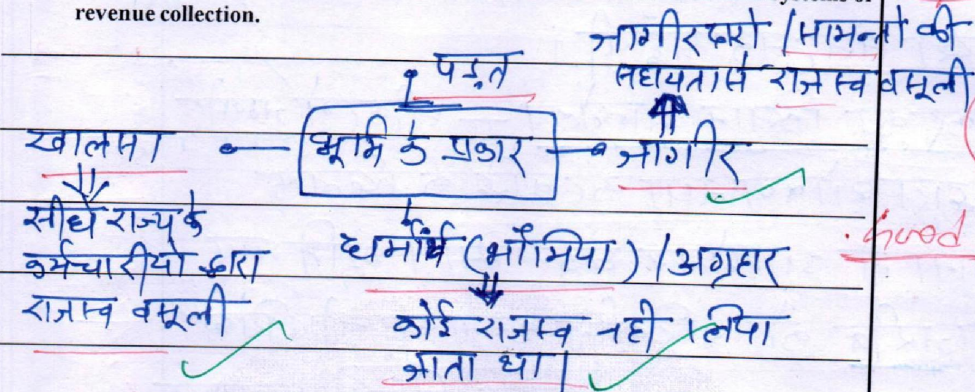 revenue collection.
जागीरदारो / सामन्तो की
सहायता से राजस्व वसूली
पड़त
खालसा
भूमि के प्रकार
जागीर
सीधे राज्य के
कर्मचारीयो द्वारा
राजस्व वसूली
धर्मार्थ (भौमिया) / अग्रहार
कोई राजस्व नही लिया
जाता था।
Good